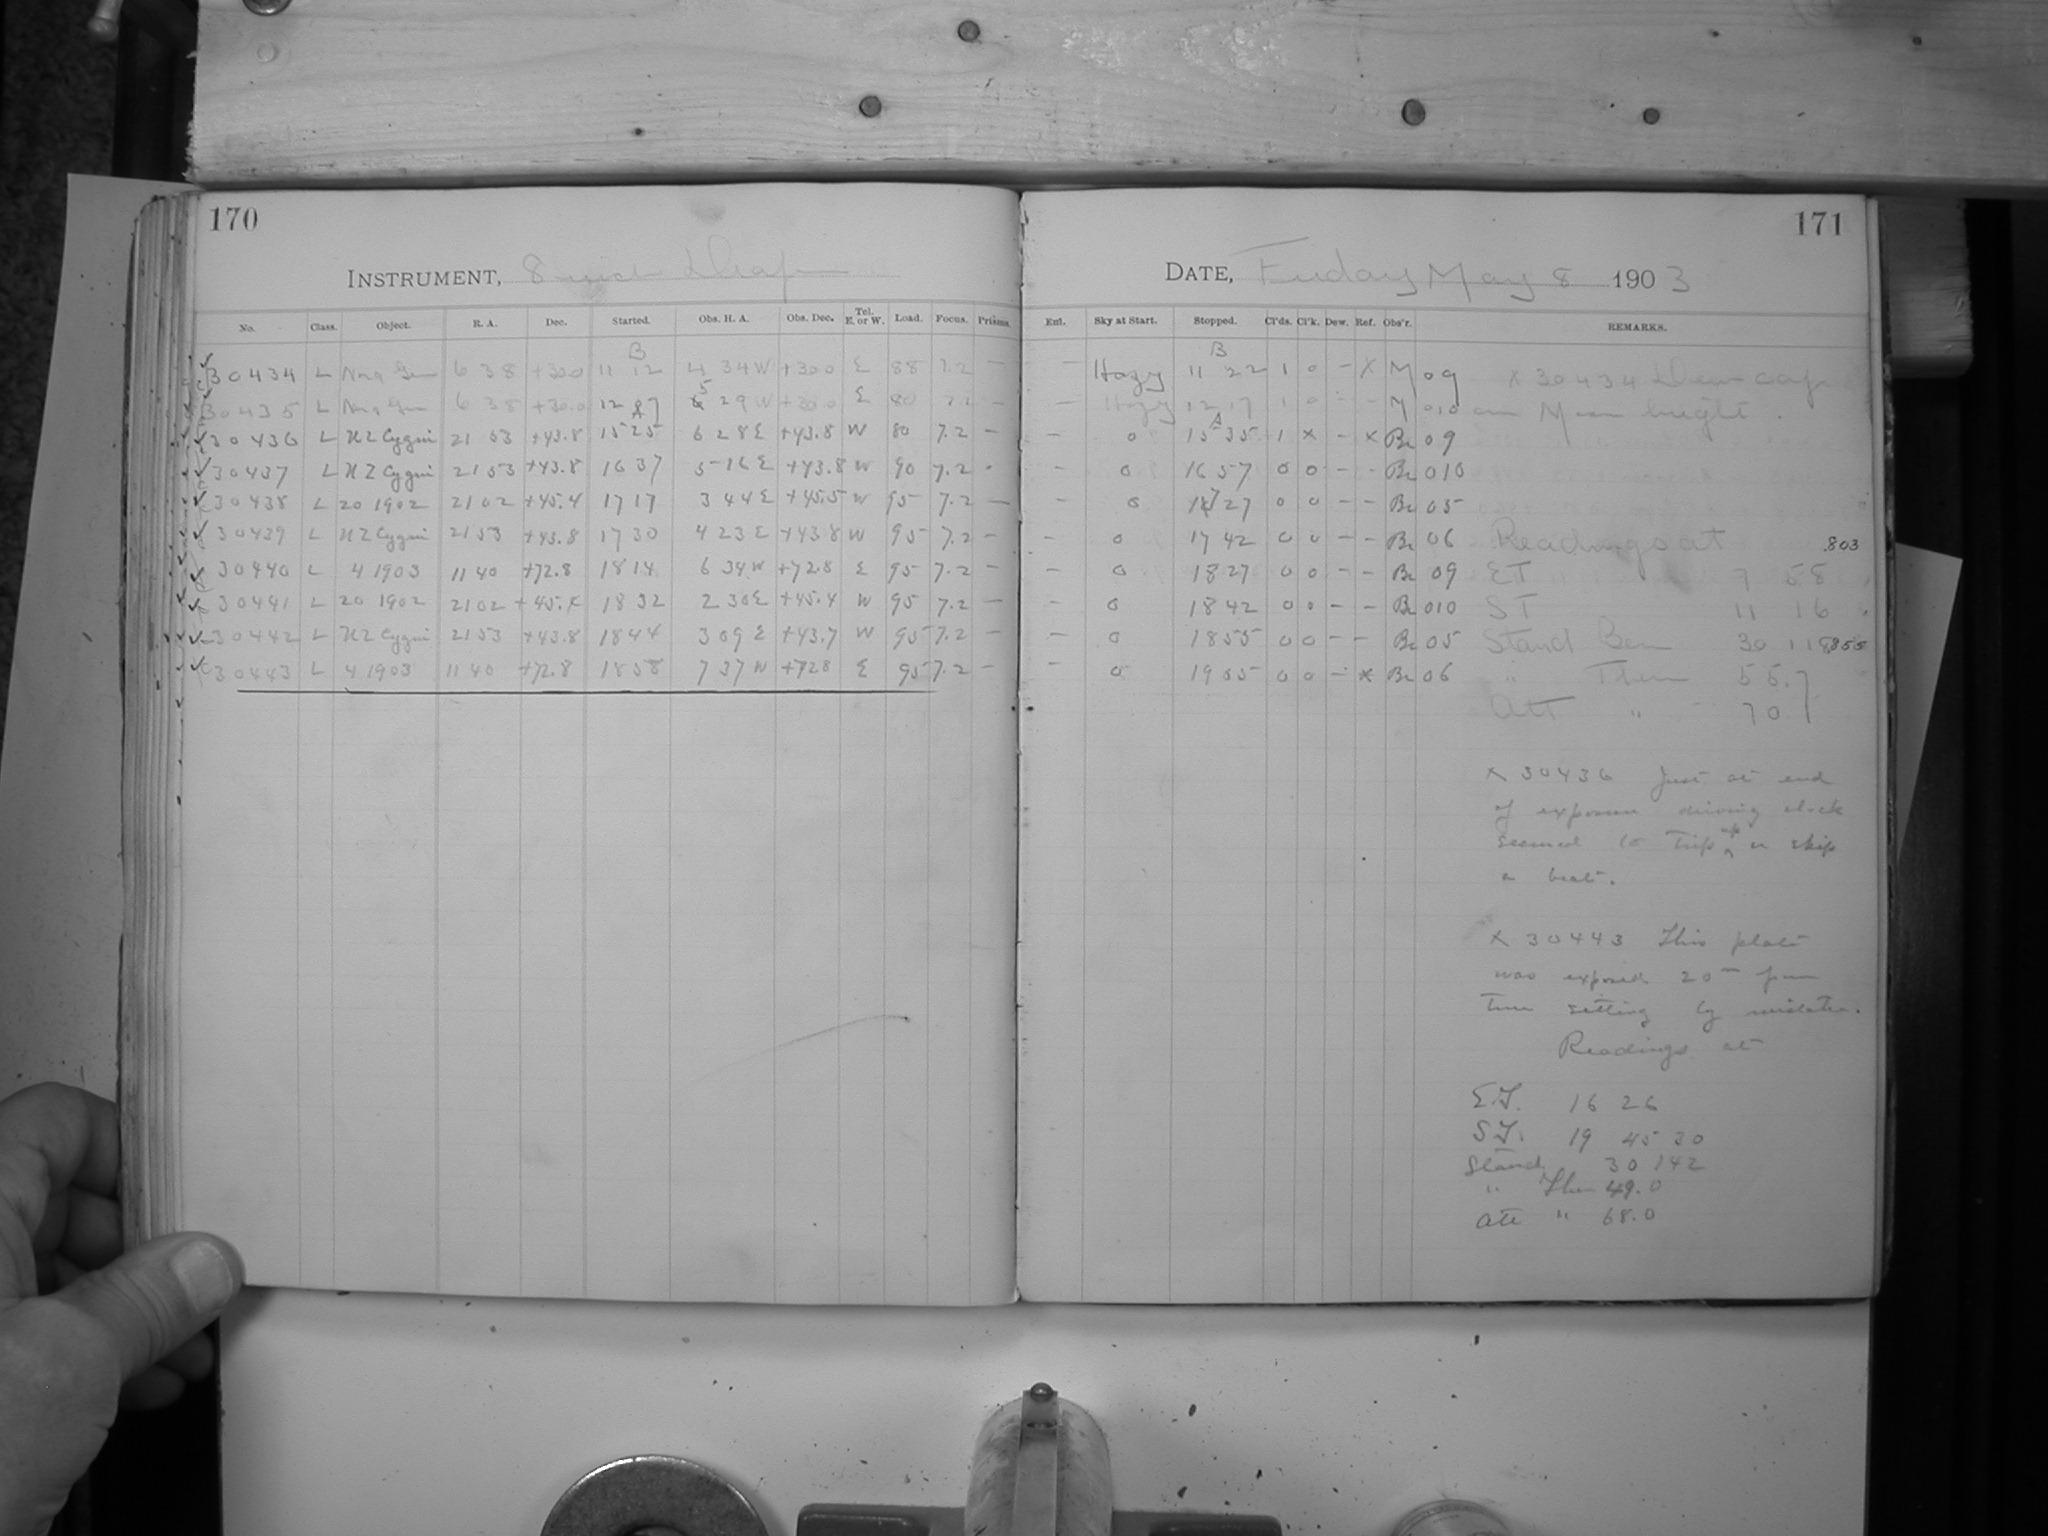 170
INSTRUMENT, 8 inch Draper
No. Class. Object. R. A. Dec. Started. Obs. H. A. Obs. Dec. Tel. E. or W. Load. Focus. Prisms.
B
30434 L Nova Gem 6 38 +30.0 11 12 4 34 W +30.0 E 88 7.2 –
30435 L Nova Gem 6 38 +30.0 12 07 5 29 W +30.0 E 80 7.2 –
A
30436 L UZ Cygni 21 53 +43.8 15 25 6 28 E +43.8 W 80 7.2 –
30437 L UZ Cygni 21 53 +43.8 16 37 5 16 E +43.8 W 90 7.2 -
30438 L 20 1902 21 02 +45.4 17 17 3 44 E +45.5 W 95 7.2 –
30439 L UZ Cygni 21 53 +43.8 17 30 4 23 E +43.8 W 95 7.2 –
30440 L 4 1903 11 40 +72.8 18 14 6 34 W +72.8 E 95 7.2 –
30441 L 20 1902 21 02 +45.4 18 32 2 30 E +45.4 W 95 7.2 –
30442 L UZ Cygni 21 53 +43.8 18 44 3 09 E +43.7 W 95 7.2 –
30443 L 4 1903 11 40 +72.8 18 58 7 37 W +72.8 E 95 7.2 –
171
DATE, Friday May 8 1903
Enl. Sky at Start. Stopped. Cl'ds. Cl'k. Dew. Ref. Obs'r. REMARKS.
B
– Hazy 11 22 1 0 – X M 09 X 30434 Dew cap
– Hazy 12 17 1 0 – – M 010 on Moon bright.
A
– 0 15 35 1 x – x Br 09
– 0 16 57 0 0 – – Br 010
– 0 17 27 0 0 – – Br 05
– 0 17 42 0 0 – – Br 06 Readings at .803
– 0 18 27 0 0 – – Br 09 ET 7 58
– 0 18 42 0 0 – – Br 010 ST 11 16
– 0 18 55 0 0 – – Br 05 Stand Bar 30 118 .855
– 0 19 05 0 0 – x Br 06 " Ther 55.7
Att " 70.1
x 30436 Just at end
of exposure driving clock
seemed to trip up or skip
a beat.
x 30443 This plate
was exposed 20m from
time setting by mistake.
Readings at
E.T. 16 26
S.T. 19 45 30
Stand 30 142
" Ther 49.0
Att " 68.0